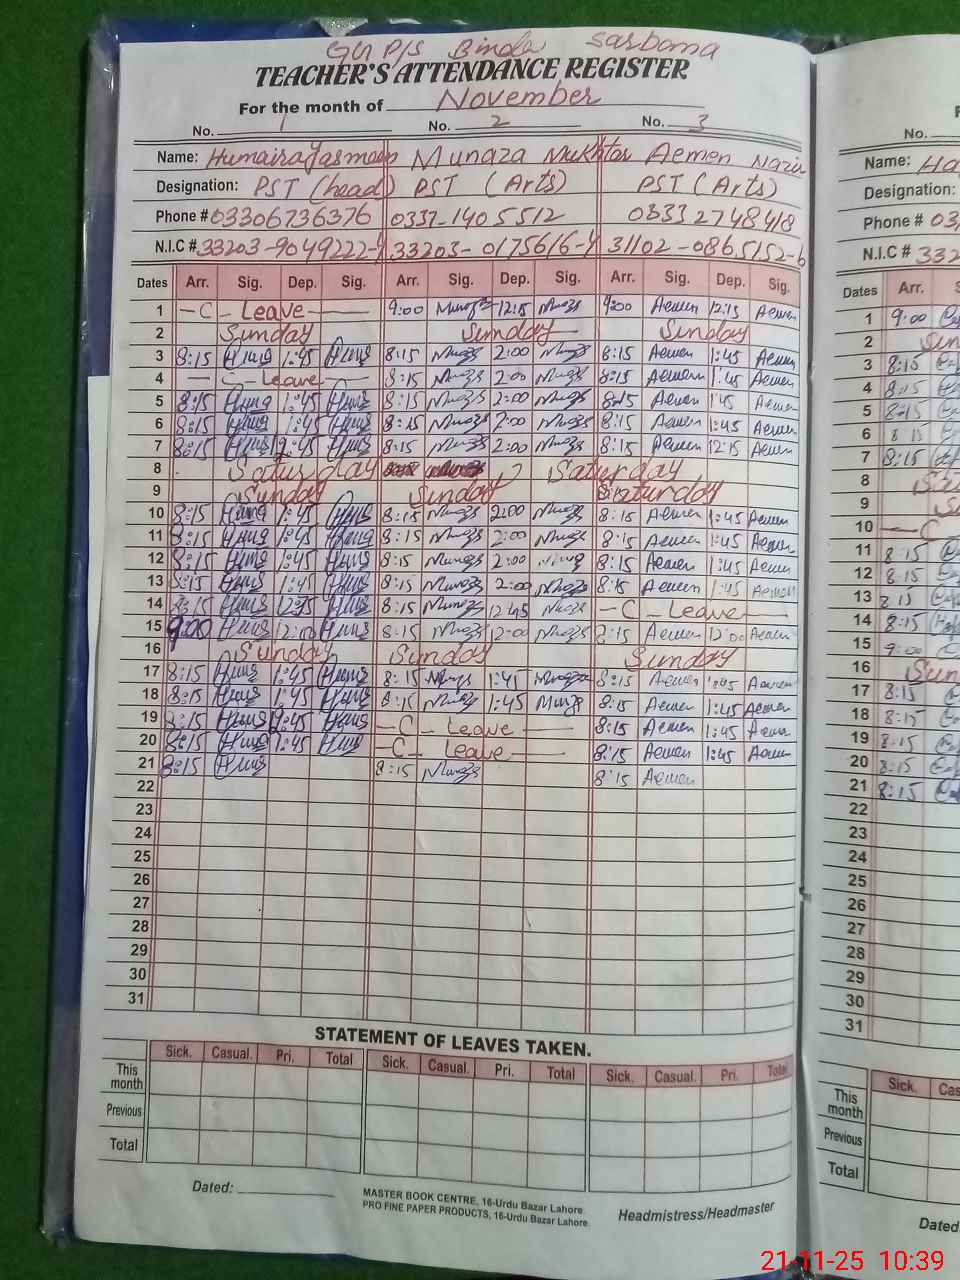 GG P/S Binda Sarbana
TEACHER'S ATTENDANCE REGISTER
For the month of November
No. 1 No. 2 No. 3
Name: Humaira Yasmeen Munaza Mukhtar Aemen Nazir
Designation: PST (head) PST (Arts) PST (Arts)
Phone # 03306736376 0337-1405512 03332748418
N.I.C # 33203-9049222-4 33203-0175616-4 31102-0865152-6
Dates Arr. Sig. Dep. Sig. Arr. Sig. Dep. Sig. Arr. Sig. Dep. Sig.
1 — C - Leave — 9:00 12:15 9:00 Aemen 12:15 Aemen
2 Sunday Sunday Sunday
3 8:15 Hums 1:45 Hums 8:15 2:00 8:15 Aemen 1:45 Aemen
4 — C - Leave — 8:15 2:00 8:15 Aemen 1:45 Aemen
5 8:15 Hums 1:45 Hums 8:15 2:00 8:15 Aemen 1:45 Aemen
6 8:15 Hums 1:45 Hums 8:15 2:00 8:15 Aemen 1:45 Aemen
7 8:15 Hums 12:45 Hums 8:15 2:00 8:15 Aemen 12:15 Aemen
8 Saturday Saturday
9 Sunday Sunday
10 8:15 Hums 1:45 Hums 8:15 2:00 8:15 Aemen 1:45 Aemen
11 8:15 Hums 1:45 Hums 8:15 2:00 8:15 Aemen 1:45 Aemen
12 8:15 Hums 1:45 Hums 8:15 2:00 8:15 Aemen 1:45 Aemen
13 8:15 Hums 1:45 Hums 8:15 2:00 8:15 Aemen 1:45 Aemen
14 8:15 Hums Hums 8:15 12:45 — C - Leave —
15 9:00 Hums 12:00 Hums 8:15 12:00 8:15 Aemen 12:00 Aemen
16 Sunday Sunday Sunday
17 8:15 Hums 1:45 Hums 8:15 1:45 8:15 Aemen 1:45 Aemen
18 8:15 Hums 1:45 Hums 8:15 1:45 8:15 Aemen 1:45 Aemen
19 8:15 Hums 1:45 Hums — C - Leave — 8:15 Aemen 1:45 Aemen
20 8:15 Hums 1:45 Hums — C - Leave — 8:15 Aemen 1:45 Aemen
21 8:15 Hums 8:15 8:15 Aemen
22
23
24
25
26
27
28
29
30
31
STATEMENT OF LEAVES TAKEN.
Sick. Casual. Pri. Total Sick. Casual. Pri. Total Sick. Casual. Pri. Total
This month
Previous
Total
Dated:
MASTER BOOK CENTRE, 16-Urdu Bazar Lahore.
PRO FINE PAPER PRODUCTS, 16-Urdu Bazar Lahore.
Headmistress/Headmaster
No.
Name:
Designation:
Phone # 03
N.I.C # 332
Dates Arr.
1 9:00
2
3 8:15
4 8:15
5 8:15
6 8:15
7 8:15
8
9
10 — C
11 8:15
12 8:15
13 8:15
14 8:15
15 9:00
16 Sun
17 8:15
18 8:15
19 8:15
20 8:15
21 8:15
22
23
24
25
26
27
28
29
30
31
Sick.
This month
Previous
Total
Dated
21-11-25 10:39